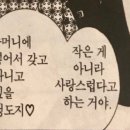 작은 게
아니라
사랑스럽다고
하는 거야.
머니에
어서 갖고
니고
을
정도지♡